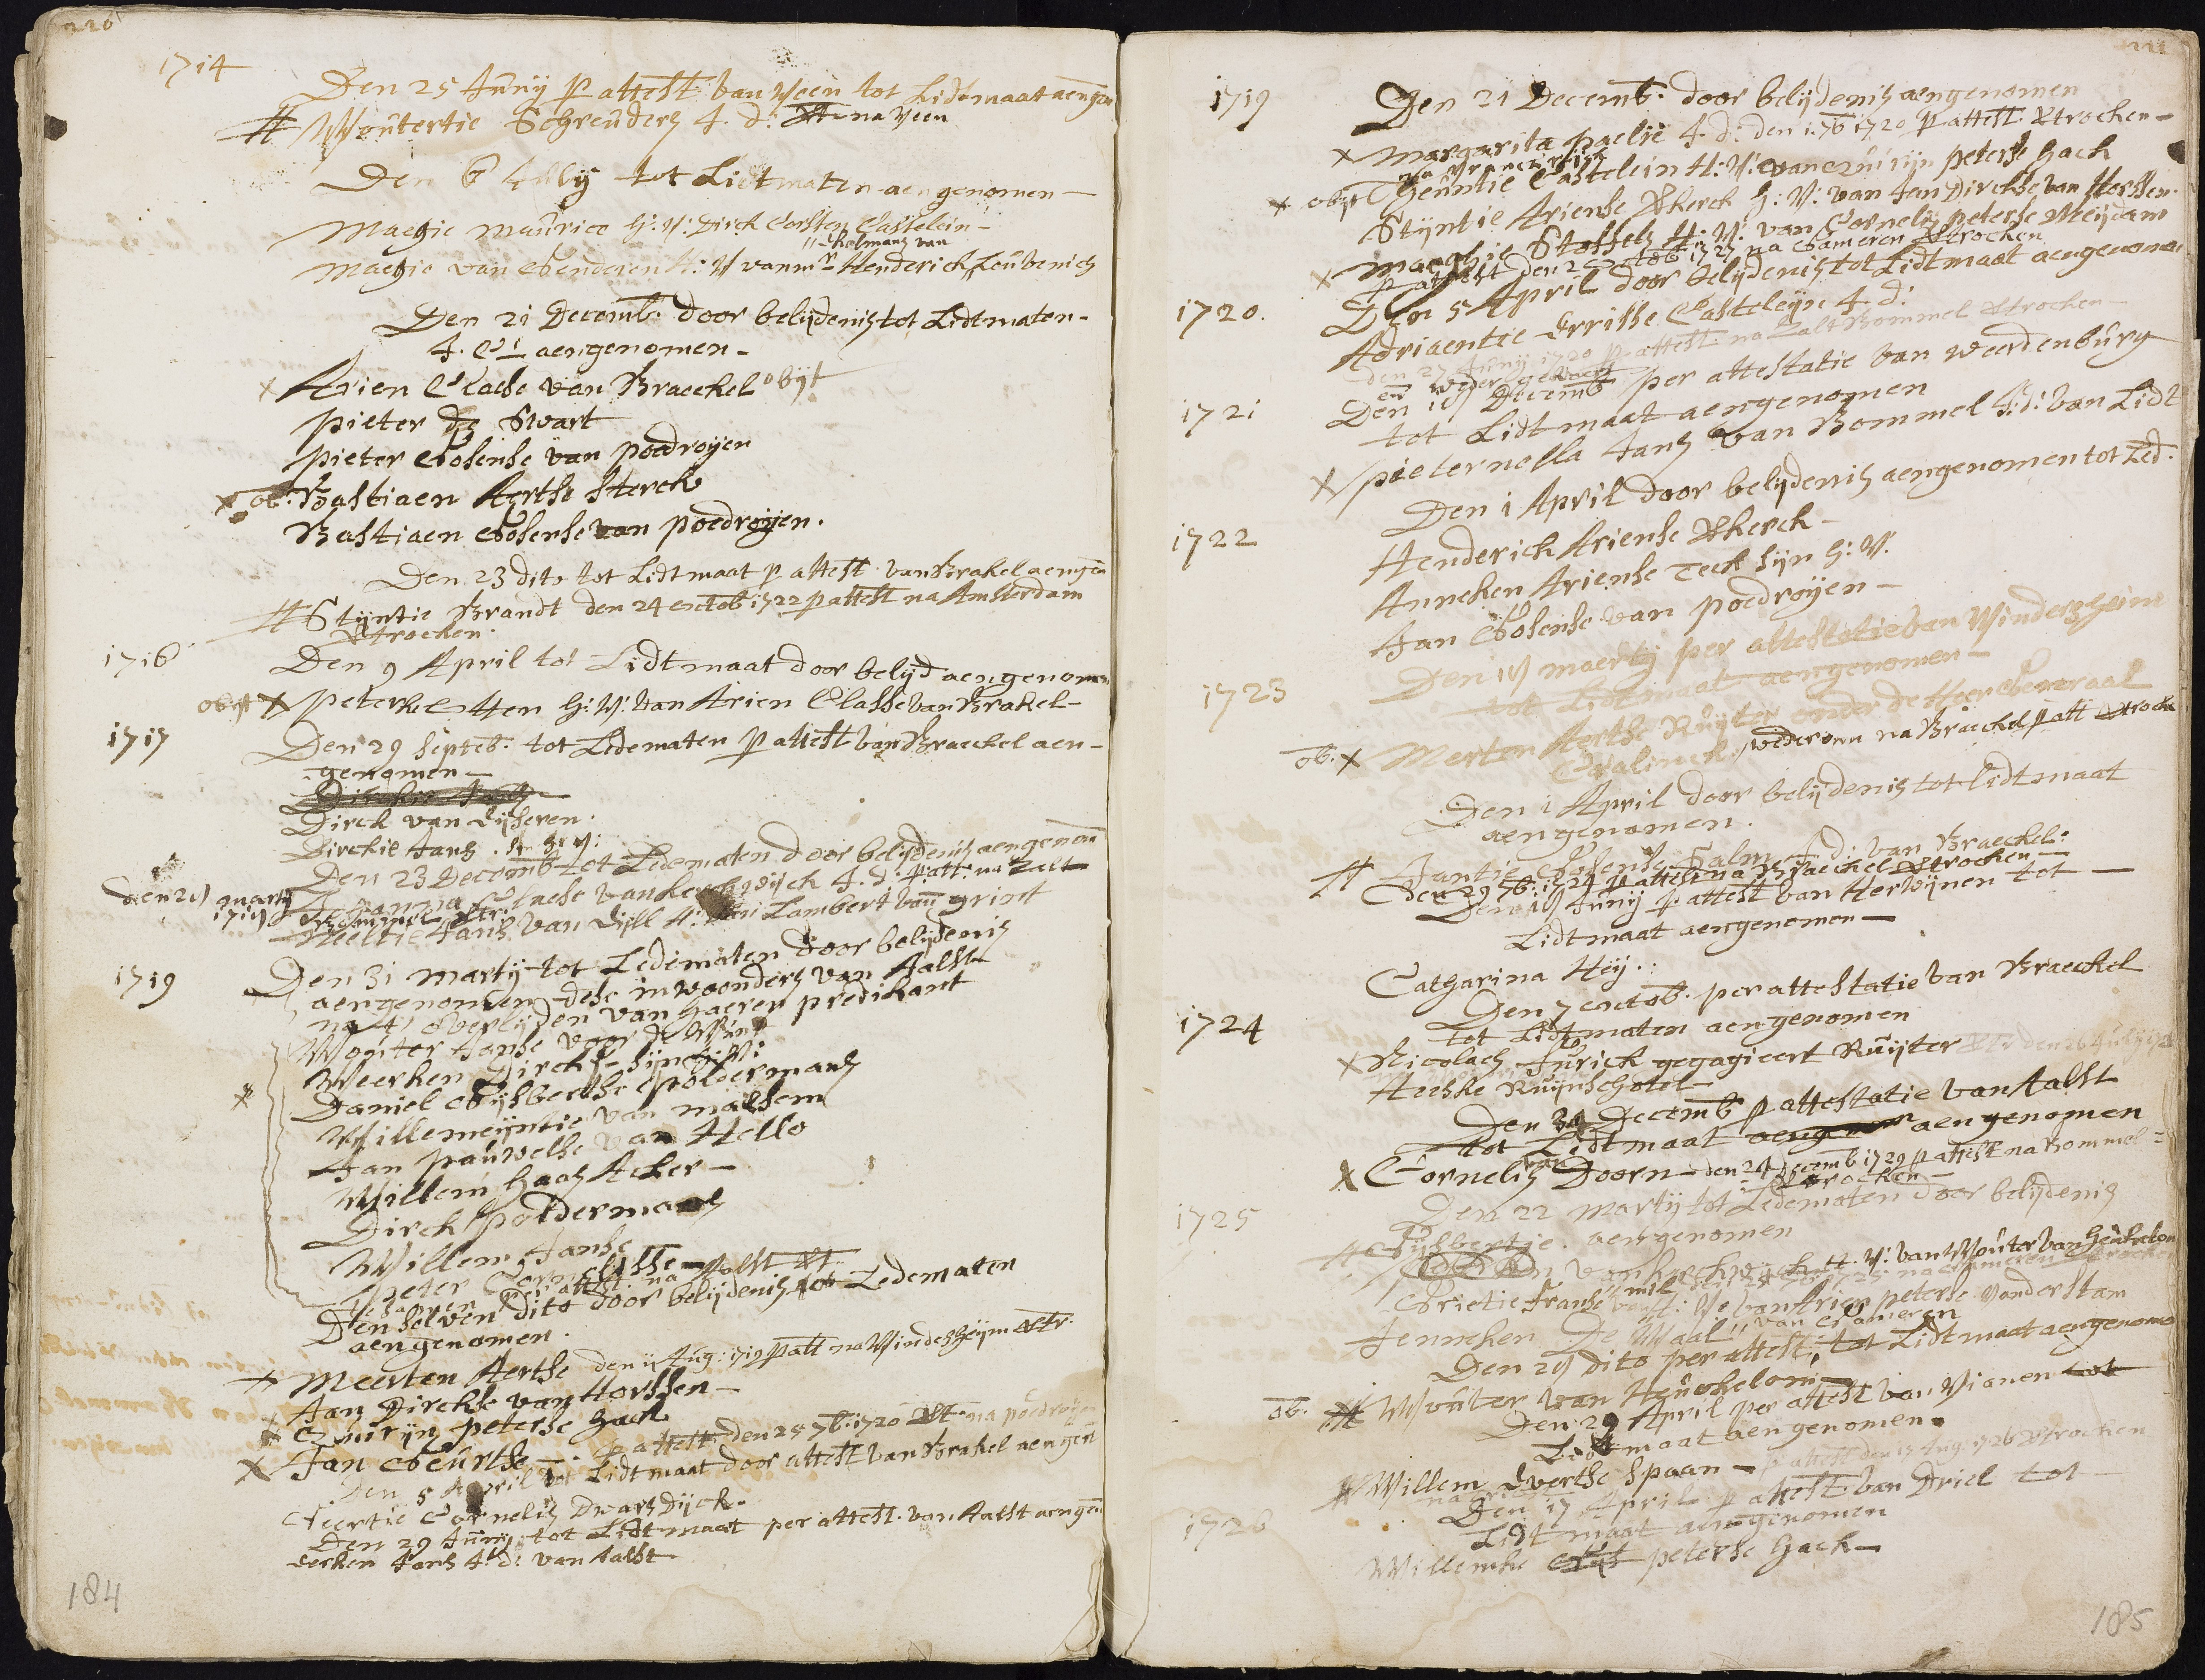 226
1714
Den 25 Junij p attest van Veen tot Lidtmaat aengen
# Woutertie Schreuders J. d. vt na Veen
Den 6 Julij tot Lidtmaten aengenomen -
Maegie Maurice H: V: Dirck Corsten Castelein -
"helmans van
Maegie van Genderen H: V van mr Henderick Leuvenich
Den 21 Decemb. door belijdenis tot Lidtmaten -
J. C: aengenomen -
x Arien Claese van Braeckel obijt
pieter de Swart
pieter Goosense van poedroijen
x ob. Bastiaen Aertse Sterck
Bastiaen Goosense van poedroijen.
Den 23 dito tot Lidtmaat p attest. van Brakel aengen
# Stijntie Brandt den 24 octob 1722 p attest na Amsterdam
vtrocken.
1716
Den 9 April tot Lidtmaat door belijd aengenomen
obijt x peterkel Hen H: V: van Arien Classe van Brakel -
1717
Den 29 Septeb. tot Ledematen p attest van Braeckel aen-
genomen -
Dirck van Eijseren.
Dirckie Jans. H: V:
Den 23 Decemb tot Ledematen door belijdenis aengenom
den 20 martij Johanna Claese van kerckwijck J. d. p att: na Zalt
1719 Bommel vtr:
Neeltie Jans van Dill H: van Lambert van Grint
1719
Den 31 martij tot Ledematen door belijdenis
aengenomen dese inwoonders van Aalst
na 't overlijden van haeren predikant
Wouter Janse voor de Wint
Weerken Dircks sijn H: V:
x Daniel Gijsbertse poldermans
Willemeijntie van malsem
Jan pauwelse van Hello
Willem Haas Acker -
Dirck poldermans
Willem Janse
peter Cornelisse
te samen per attest. na Aalst vt
Den selven dito door belijdenis tot Ledematen
aengenomen.
x Meerten Aertse den 11 Aug: 1719 p att na Windesheijm vtr.
Jan Dirckse van Horssen -
x Quirijn peterse Hack
x Jan Geurtse - p attest. den 25 7b: 1720 vt. na poedroijen
Den 5 April tot Lidtmaat door attest van Brakel aengen
Neertie Cornelis Dwarsdijck.
Den 29 Junij tot Lidtmaat per attest. van Aalst aengen
Eerken Jans J. d: van Aalst
184
1719
Den 21 Decemb. door belijdenis aengenomen
x Margarita paelie J. d: den 1. 7b 1720 p attest. vtrocken -
x obijt Geuntie Castelein H: V: van Quirijn peterse Hack
Stijntie Ariense Vkerck H: V: van Jan Dirckse van Horssen.
x maeghie Stoffels H: V: van Cornelis peterse Meijdam
p attest den 2 octob 1727 na Gameren vtrocken
1720.
Den 5 April door belijdenis tot Lidtmaat aengenomen
Adriaentie Errisse Casteleijn J. d:
den 27 Junij 1720 p attest. na Zalt Bommel vtrocken -
en weder gebracht
1721
Den 10 Decemb per attestatie van weerdenburg
tot Lidtmaat aengenomen
x pieternella Jans van Bommel J: d: van Lidt
Den 1 April door belijdenis aengenomen tot Led.
1722
Henderick Ariense Vkerck -
Anneken Ariense Teck sijn H: V.
Jan Goosense van poedroijen -
1723
Den 10 maertij per attestatie van Windesheim
tot Lidtmaat aengenomen -
ob. x Merten Aertse Ruijter onder de Heer Generaal
Gralinck. wederom na Braeckel p att vtrock
Den 1 April door belijdenis tot Lidtmaat
aengenomen.
# Jantie Goosense Salm J. d: van Braeckel.
Den 29 7b: 1724 p attest na Braeckel vtrocken
Den 10 Junij p attest van Herwijnen tot -
Lidtmaat aengenomen -
Catharina Heij.
1724
Den 7 octob. per attestatie van Braeckel
tot Lidtmaten aengenomen
x Nicolaes Jurick gegagieert Ruijter vtr den 26 Julij
Aeltske Ruijnschotel -
Den 30 Decemb p attestatie van Aalst
tot Lidtmaat aengenomen
x Cornelis van Doorn - den 24 Decemb 1729 p attest na Bommel
vtrocken -
1725
Den 22 martij tot Ledematen door belijdenis
# Gijsbertie. aengenomen
van kerckwijck H. V: van Wouter van Heukelom
Grietie Franse smit H: V: van Arien peterse vander Stam
Jenneken De Waal " van Gameren
Den 29 dito per attest, tot Lidtmaat aengenomen
ob. # Wouter van Heuckelom
Den 29 April per attest van Vianen tot
Lidtmaat aengenomen.
# Willem Evertse Spaan - p attest den 17 Aug. 1726 vtrocken
1726
Den 17 April p attest van Driel tot
Lidtmaat aengenomen
Willemke peterse Hack -
185